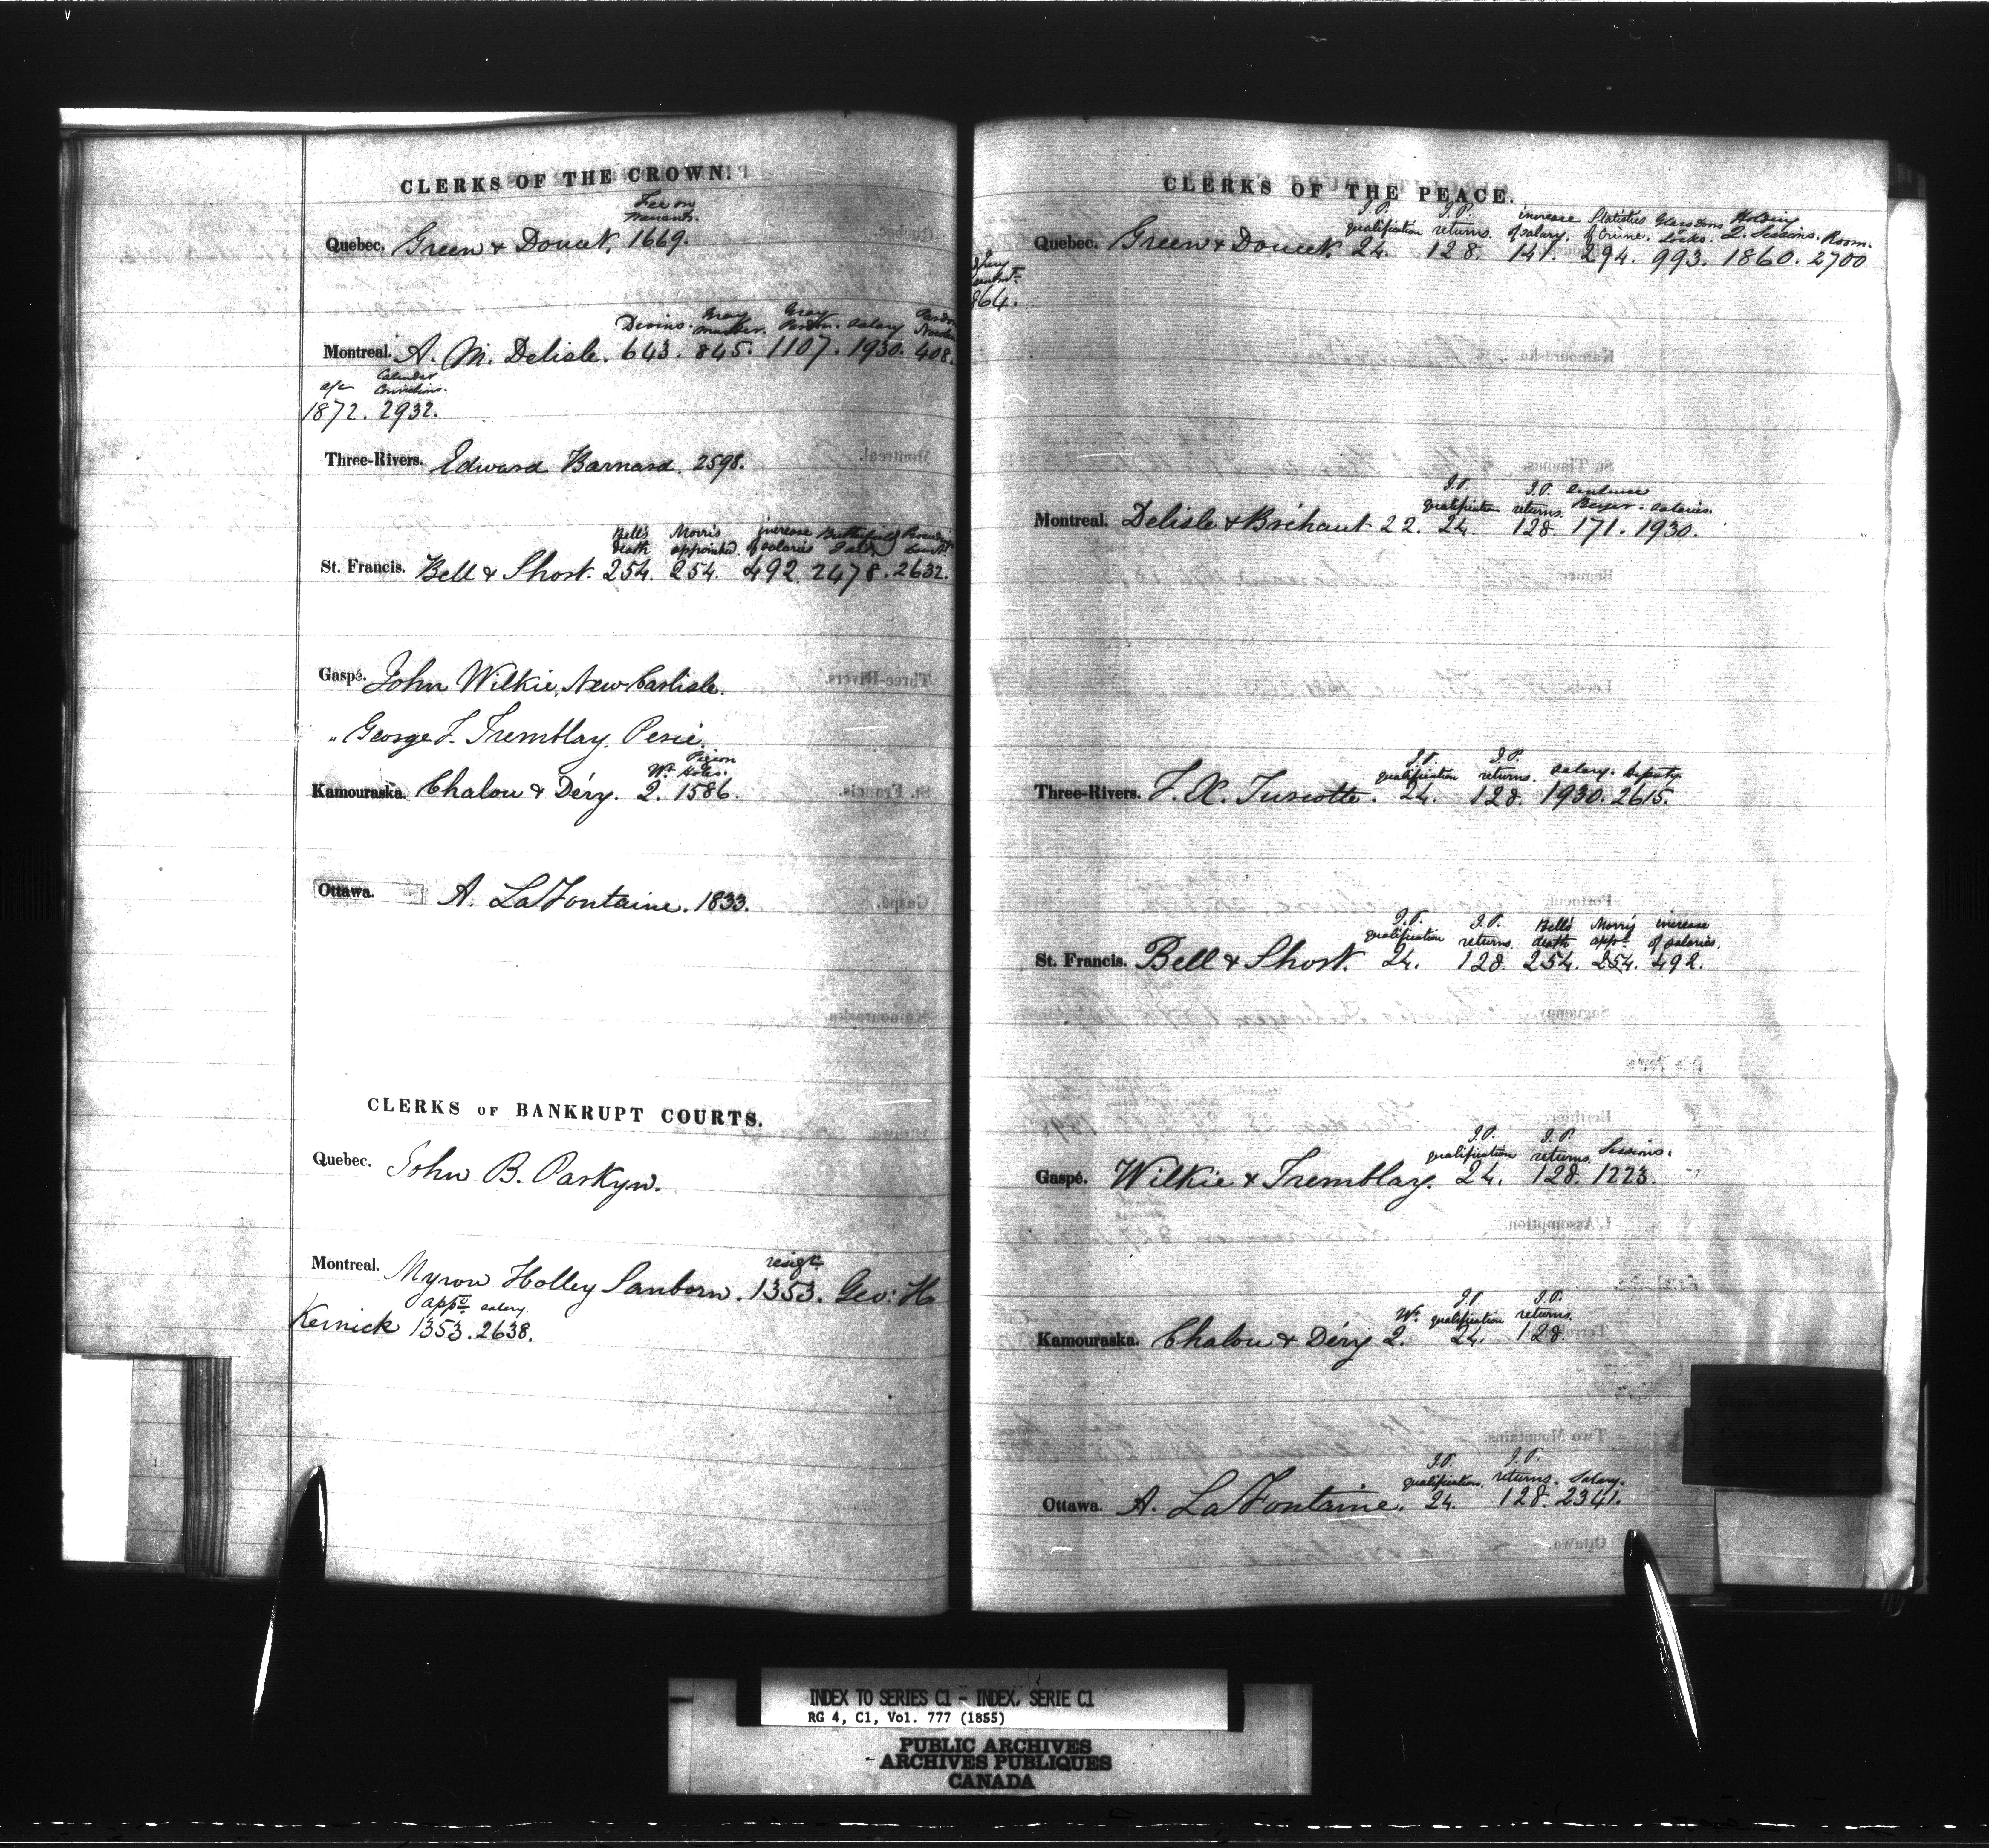 CLERKS OF THE CROWN.
Fee on
Warrants.
Quebec. Green & Doucet, 1669.
Devins. Gray Gray salary Pardon
murder. Pardon.
Montreal. A. M. Delisle. 643. 845. 1107. 1930. 408.
a/c Calendar
Convictions.
1872. 2932.
Three-Rivers. Edward Barnard. 2598.
Bell's Morris increase
death appointed. of salaries
St. Francis. Bell & Short. 254. 254. 492. 2478. 2632.
Gaspé. John Wilkie, New Carlisle.
" George F. Tremblay, Percé.
Pigeon
Wt. Holes.
Kamouraska. Chalou & Déry. 2. 1586.
Ottawa. A. LaFontaine. 1833.
CLERKS OF BANKRUPT COURTS.
Quebec. John B. Parkyn.
resigt.
Montreal. Myron Holley Sanborn. 1353. Geo: H
appt. salary.
Kernick 1353. 2638.
CLERKS OF THE PEACE.
J.P. J.P. increase Statistics Glass Doors Holding
qualification returns. of salary. of Crime. Locks. Q. Sessions. Room.
Quebec. Green & Doucet. 24. 128. 141. 294. 993. 1860. 2700
864.
J.P. J.P. sentence
qualification returns. Beyer. salaries.
Montreal. Delisle & Bréhaut 22. 24. 128. 171. 1930.
J.P. J.P.
qualification returns. salary. Deputy.
Three-Rivers. F. X. Turcotte. 24. 128. 1930. 2615.
J.P. J.P. Bell's Morris increase
qualification returns. death appt. of salaries.
St. Francis. Bell & Short. 24. 128. 254. 254. 492.
J.P. J.P.
qualification returns. Sessions.
Gaspé. Wilkie & Tremblay. 24. 128. 1223.
J.P. J.P.
Wt. qualification returns.
Kamouraska. Chalou & Déry 2. 24. 128.
J.P. J.P.
qualification. returns. Salary.
Ottawa. A. LaFontaine. 24. 128. 2341.
INDEX TO SERIES C1 - INDEX, SERIE C1
RG 4, C1, Vol. 777 (1855)
PUBLIC ARCHIVES
- ARCHIVES PUBLIQUES
CANADA